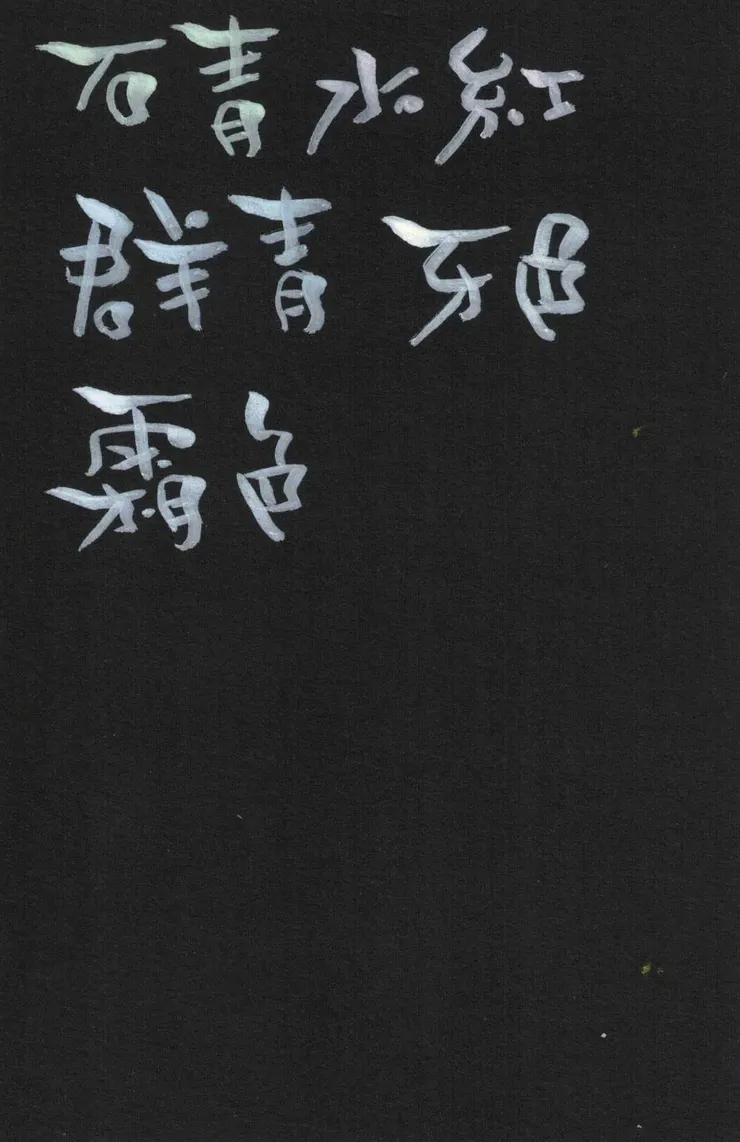 石青水紅
群青牙色
霜色